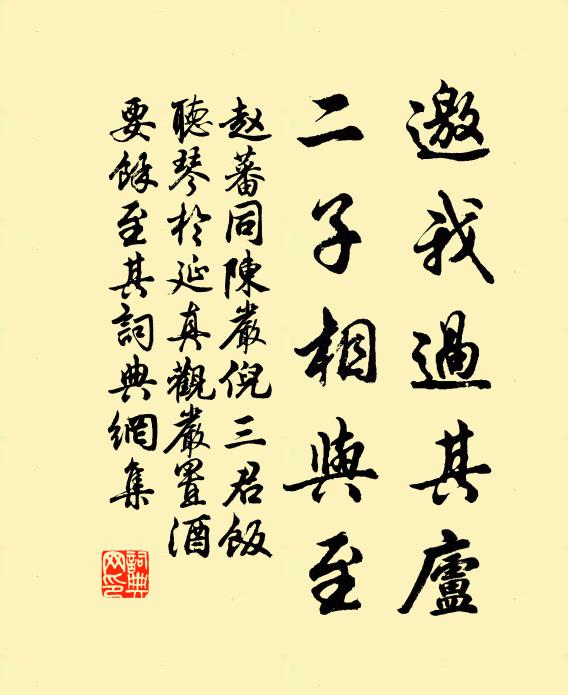 邀我過其廬
二子相與至
赵蕃同陳嚴倪三君飯
聽琴於延真觀嚴置酒
要餘至其詞典網集
詞典网印